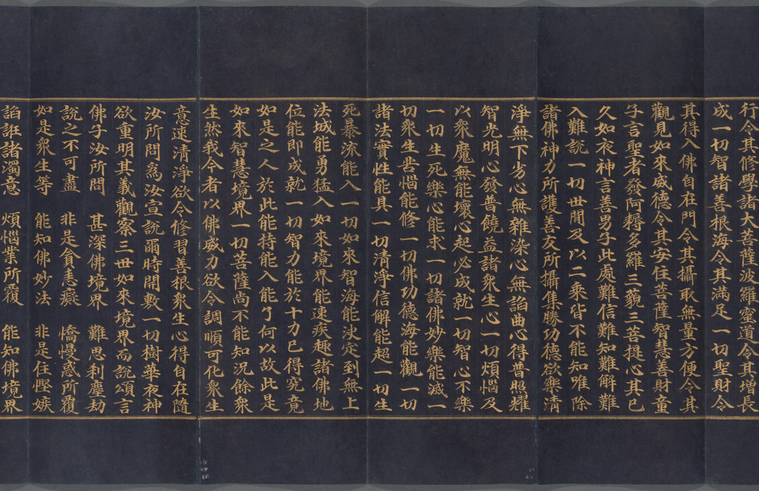 行令其修學諸大菩薩波羅蜜道令其增長
成一切智諸善根海令其滿足一切聖財令
其得入佛自在門令其攝取無量方便令其
觀見如來威德令其安住菩薩智慧善財童
子言聖者發阿耨多羅三藐三菩提心其已
久如夜神言善男子此處難信難知難解難
入難說一切世間及以二乘皆不能知唯除
諸佛神力所護善友所攝集勝功德欲樂清
淨無下劣心無雜染心無諂曲心得普照耀
智光明心發普饒益諸眾生心一切煩惱及
以眾魔無能壞心起必成就一切智心不樂
一切生死樂心能求一切諸佛妙樂能滅一
切眾生苦惱能修一切佛功德海能觀一切
諸法實性能具一切清淨信解能超一切生
死暴流能入一切如來智海能決定到無上
法城能勇猛入如來境界能速疾趣諸佛地
位能即成就一切智力能於十力已得究竟
如是之人於此能持能入能了何以故此是
如來智慧境界一切菩薩尚不能知況餘眾
生然我今者以佛威力欲令調順可化眾生
意速清淨欲令修習善根眾生心得自在隨
汝所問為汝宣說爾時開敷一切樹華夜神
欲重明其義觀察三世如來境界而說頌言
佛子汝所問　甚深佛境界　難思剎塵劫
說之不可盡　非是貪恚癡　憍慢惑所覆
如是眾生等　能知佛妙法　非是住慳嫉
諂誑諸濁意　煩惱業所覆　能知佛境界